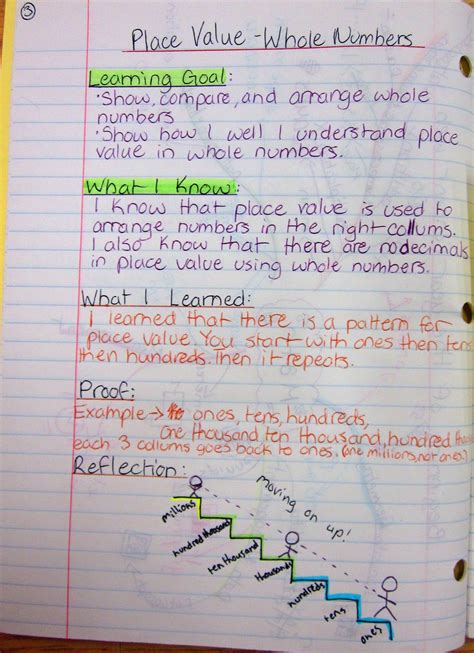 3
Place Value - Whole Numbers
Learning Goal:
• Show, compare, and arrange whole
numbers
• Show how I well I understand place
value in whole numbers.
What I Know:
I know that place value is used to
arrange numbers in the right collums.
I also know that there are no decimals
in place value using whole numbers.
What I Learned:
I learned that there is a pattern for
place value. You start with ones then tens
then hundreds. Then it repeats.
Proof:
Example → ones, tens, hundreds,
one thousand, ten thousand, hundred
each 3 collums goes back to ones. (one millions, not ones)
Reflection:
moving on up!
millions
hundred thousand
ten thousand
thousands
hundreds
tens
ones